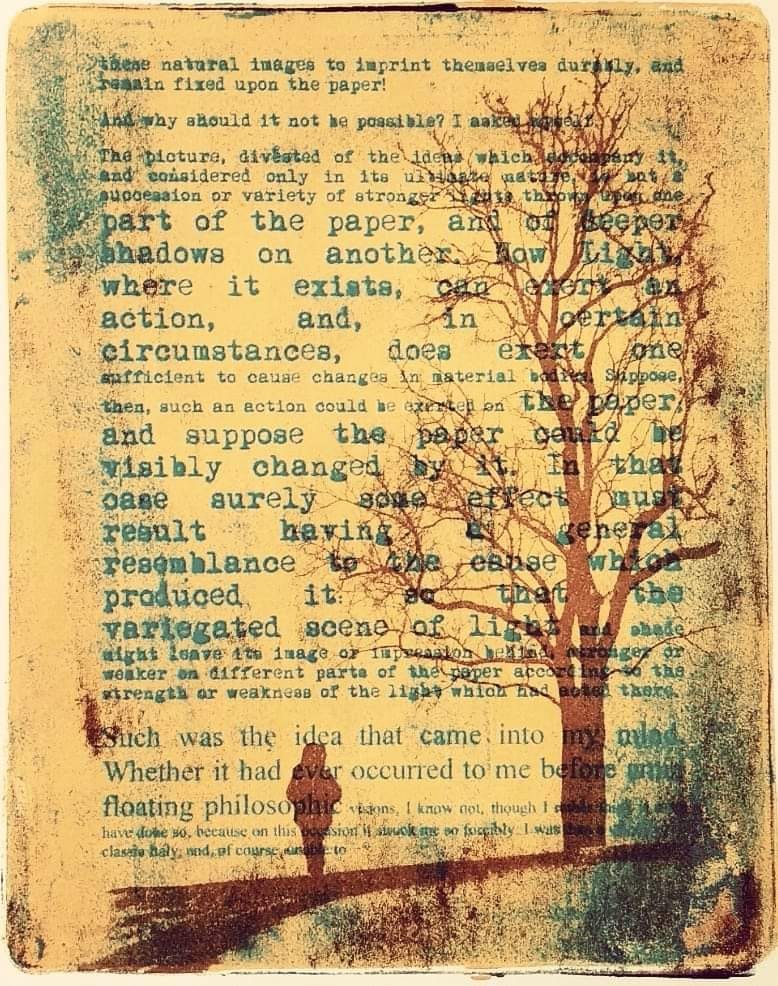 these natural images to imprint themselves durably, and
remain fixed upon the paper!
And why should it not be possible? I asked myself.
The picture, divested of the ideas which accompany it,
and considered only in its ultimate nature, is but a
succession or variety of stronger lights thrown upon one
part of the paper, and of deeper
shadows on another. Now Light,
where it exists, can exert an
action, and, in certain
circumstances, does exert one
sufficient to cause changes in material bodies. Suppose,
then, such an action could be exerted on the paper;
and suppose the paper could be
visibly changed by it. In that
case surely some effect must
result having a general
resemblance to the cause which
produced it: so that the
variegated scene of light and shade
might leave its image or impression behind, stronger or
weaker on different parts of the paper according to the
strength or weakness of the light which had acted there.
Such was the idea that came into my mind.
Whether it had ever occurred to me before amid
floating philosophic visions, I know not, though I rather think it
have done so, because on this occasion it struck me so forcibly. I was then a
classic Italy, and, of course, unable to